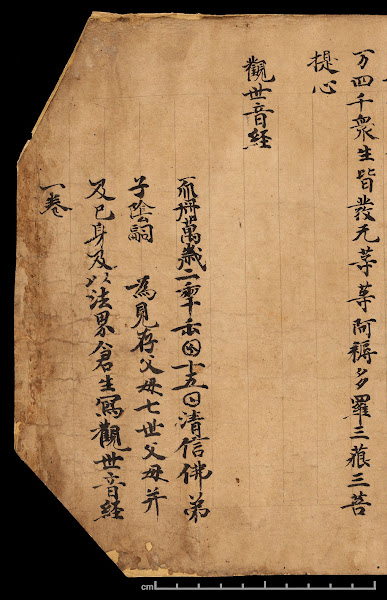 万四千衆生皆發无等等阿耨多羅三藐三菩
提心
觀世音経
𠀑冊萬歲二𠡦𠙺𡇹十五𡆠清信佛弟
子陰嗣 為見存父母七世父母并
及己身及以法界倉生寫觀世音経
一卷